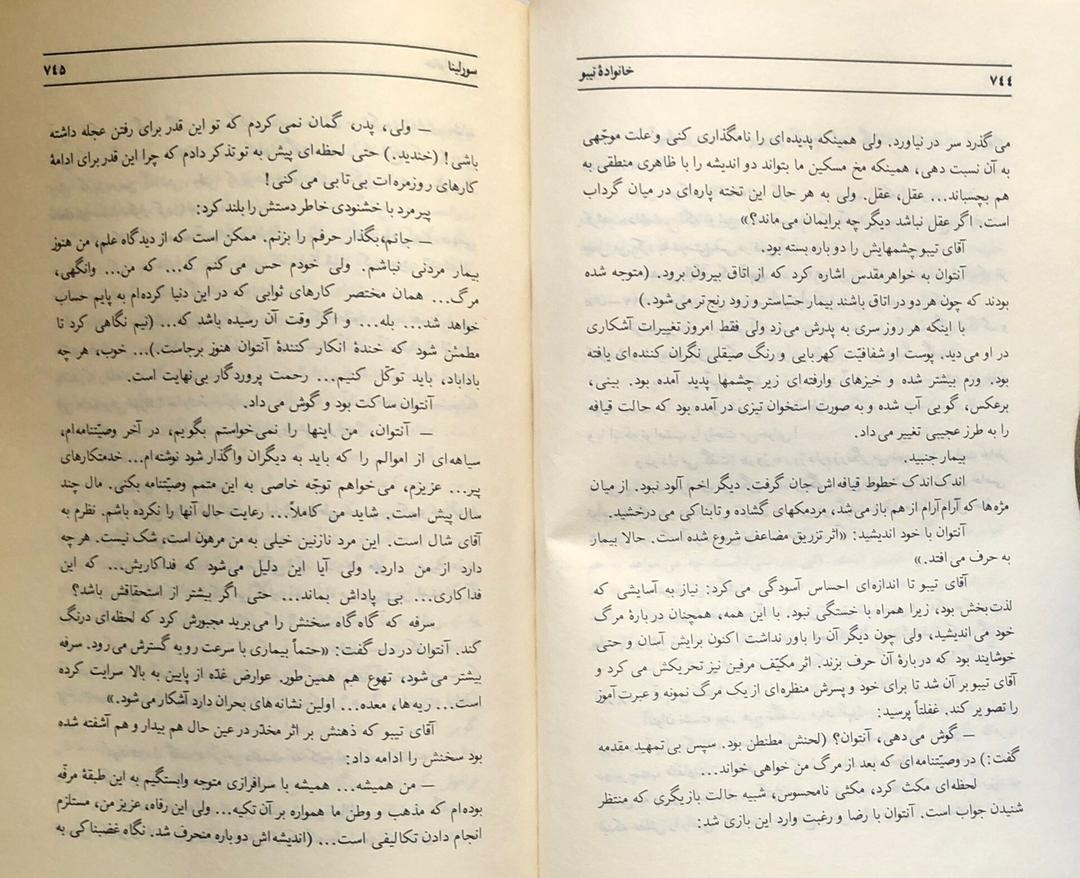 ۷۴۴
خانوادهٔ تیبو
می گذرد سر در نیاورد. ولی همینکه پدیده ای را نامگذاری کنی و علت موجّهی
به آن نسبت دهی، همینکه مخ مسکین ما بتواند دو اندیشه را با ظاهری منطقی به
هم بچسباند... عقل، عقل. ولی به هر حال این تخته پاره ای در میان گرداب
است. اگر عقل نباشد دیگر چه برایمان می ماند؟»
آقای تیبو چشمهایش را دوباره بسته بود.
آنتوان به خواهر مقدس اشاره کرد که از اتاق بیرون برود. (متوجه شده
بودند که چون هر دو در اتاق باشند بیمار حسّاستر و زود رنج تر می شود.)
با اینکه هر روز سری به پدرش می زد ولی فقط امروز تغییرات آشکاری
در او می دید. پوست او شفافیّت کهربایی و رنگ صیقلی نگران کننده ای یافته
بود. ورم بیشتر شده و خیزهای وارفته ای زیر چشمها پدید آمده بود. بینی،
برعکس، گویی آب شده و به صورت استخوان تیزی در آمده بود که حالت قیافه
را به طرز عجیبی تغییر می داد.
بیمار جنبید.
اندک اندک خطوط قیافه اش جان گرفت. دیگر اخم آلود نبود. از میان
مژه ها که آرام آرام از هم باز می شد، مردمکهای گشاده و تابناکی می درخشید.
آنتوان با خود اندیشید: «اثر تزریق مضاعف شروع شده است. حالا بیمار
به حرف می افتد.»
آقای تیبو تا اندازه ای احساس آسودگی می کرد: نیاز به آسایشی که
لذت بخش بود، زیرا همراه با خستگی نبود. با این همه، همچنان دربارهٔ مرگ
خود می اندیشید، ولی چون دیگر آن را باور نداشت اکنون برایش آسان و حتی
خوشایند بود که دربارهٔ آن حرف بزند. اثر مکیّف مرفین نیز تحریکش می کرد و
آقای تیبو بر آن شد تا برای خود و پسرش منظره ای از یک مرگ نمونه و عبرت آموز
را تصویر کند. غفلتاً پرسید:
— گوش می دهی، آنتوان؟ (لحنش مطنطن بود. سپس بی تمهید مقدمه
گفت:) در وصیّتنامه ای که بعد از مرگ من خواهی خواند...
لحظه ای مکث کرد، مکثی نامحسوس، شبیه حالت بازیگری که منتظر
شنیدن جواب است. آنتوان با رضا و رغبت وارد این بازی شد:
سورلینا
۷۴۵
— ولی، پدر، گمان نمی کردم که تو این قدر برای رفتن عجله داشته
باشی! (خندید.) حتی لحظه ای پیش به تو تذکر دادم که چرا این قدر برای ادامهٔ
کارهای روزمره ات بی تابی می کنی!
پیرمرد با خشنودی خاطر دستش را بلند کرد:
— جانم، بگذار حرفم را بزنم. ممکن است که از دیدگاه علم، من هنوز
بیمار مردنی نباشم. ولی خودم حس می کنم که... که من... وانگهی،
مرگ... همان مختصر کارهای ثوابی که در این دنیا کرده ام به پایم حساب
خواهد شد... بله... و اگر وقت آن رسیده باشد که... (نیم نگاهی کرد تا
مطمئن شود که خندهٔ انکار کنندهٔ آنتوان هنوز برجاست.)... خوب، هر چه
باداباد، باید توکّل کنیم... رحمت پروردگار بی نهایت است.
آنتوان ساکت بود و گوش می داد.
— آنتوان، من اینها را نمی خواستم بگویم، در آخر وصیّتنامه ام،
سیاهه ای از اموالم را که باید به دیگران واگذار شود نوشته ام... خدمتکارهای
پیر... عزیزم، می خواهم توجّه خاصی به این متمم وصیّتنامه بکنی. مال چند
سال پیش است. شاید من کاملاً... رعایت حال آنها را نکرده باشم. نظرم به
آقای شال است. این مرد نازنین خیلی به من مرهون است، شک نیست. هر چه
دارد از من دارد. ولی آیا این دلیل می شود که فداکاریش... که این
فداکاری... بی پاداش بماند... حتی اگر بیشتر از استحقاقش باشد؟
سرفه که گاه گاه سخنش را می برید مجبورش کرد که لحظه ای درنگ
کند. آنتوان در دل گفت: «حتماً بیماری با سرعت رو به گسترش می رود. سرفه
بیشتر می شود، تهوع هم همین طور. عوارض غدّه از پایین به بالا سرایت کرده
است... ریه ها، معده... اولین نشانه های بحران دارد آشکار می شود.»
آقای تیبو که ذهنش بر اثر مخدّر در عین حال هم بیدار و هم آشفته شده
بود سخنش را ادامه داد:
— من همیشه... همیشه با سرافرازی متوجه وابستگیم به این طبقهٔ مرفّه
بوده ام که مذهب و وطن ما همواره بر آن تکیه... ولی این رفاه، عزیز من، مستلزم
انجام دادن تکالیفی است... (اندیشه اش دوباره منحرف شد. نگاه غضبناکی به